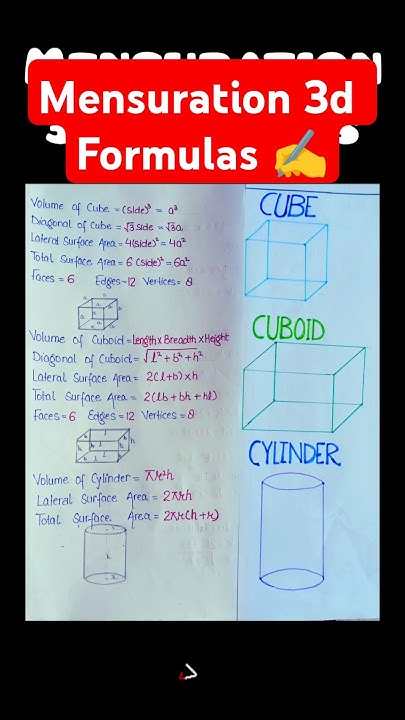 Mensuration 3d
Formulas ✍️
Volume of Cube = (side)³ = a³
Diagonal of Cube = √3 side = √3a
Lateral Surface Area = 4(side)² = 4a²
Total Surface Area = 6(side)² = 6a²
Faces = 6 Edges-12 Vertices = 8
CUBE
Volume of Cuboid = Length x Breadth x Height
Diagonal of Cuboid = √l² + b² + h²
Lateral Surface Area = 2(l+b) x h
Total Surface Area = 2(lb + bh + hl)
Faces = 6 Edges = 12 Vertices = 8
CUBOID
Volume of Cylinder = πr²h
Lateral Surface Area = 2πrh
Total Surface Area = 2πr(h+r)
CYLINDER